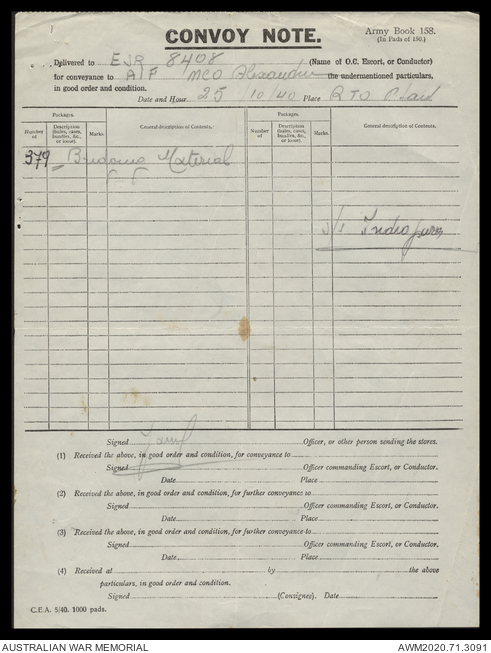 CONVOY NOTE.
Army Book 158.
(In Pads of 150.)
Delivered to EJR 8408 (Name of O.C. Escort, or Conductor)
for conveyance to A/F MCO Alexandria the undermentioned particulars,
in good order and condition.
Date and Hour 25/10/40 Place RTO
Packages. Packages.
Number of Description (bales, cases, bundles, &c., or loose). Marks. General description of Contents. Number of Description (bales, cases, bundles, &c., or loose). Marks. General description of Contents.
379 Bridging Material
s/s Indrapura
Signed Officer, or other person sending the stores.
(1) Received the above, in good order and condition, for conveyance to
Signed Officer commanding Escort, or Conductor.
Date Place
(2) Received the above, in good order and condition, for further conveyance to
Signed Officer commanding Escort, or Conductor.
Date Place
(3) Received the above, in good order and condition, for further conveyance to
Signed Officer commanding Escort, or Conductor.
Date Place
(4) Received at by the above
particulars, in good order and condition.
Signed (Consignee). Date
C.E.A. 5/40. 1000 pads.
AUSTRALIAN WAR MEMORIAL AWM2020.71.3091